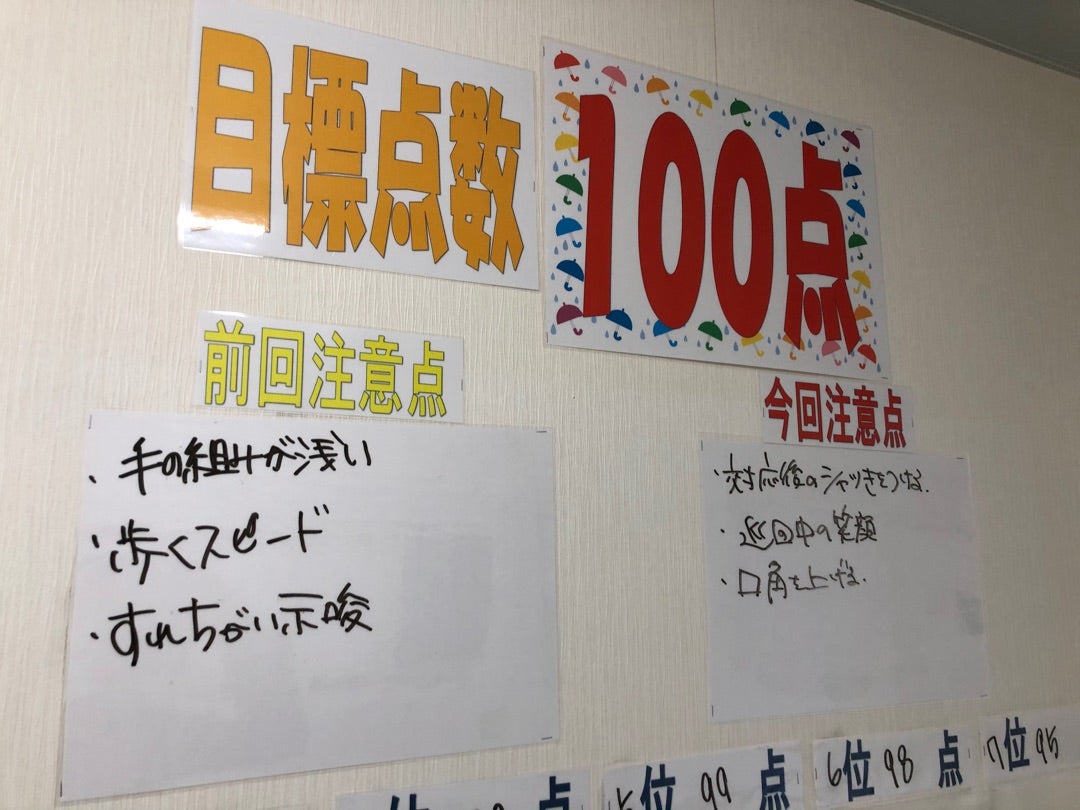 目標点数
100点
前回注意点
・手の組みが浅い
・歩くスピード
・すれちがい示唆
今回注意点
・対応後のシャツきをつける.
・巡回中の笑顔
・口角を上げる.
位 点
5位 99 点
6位 98 点
7位 95